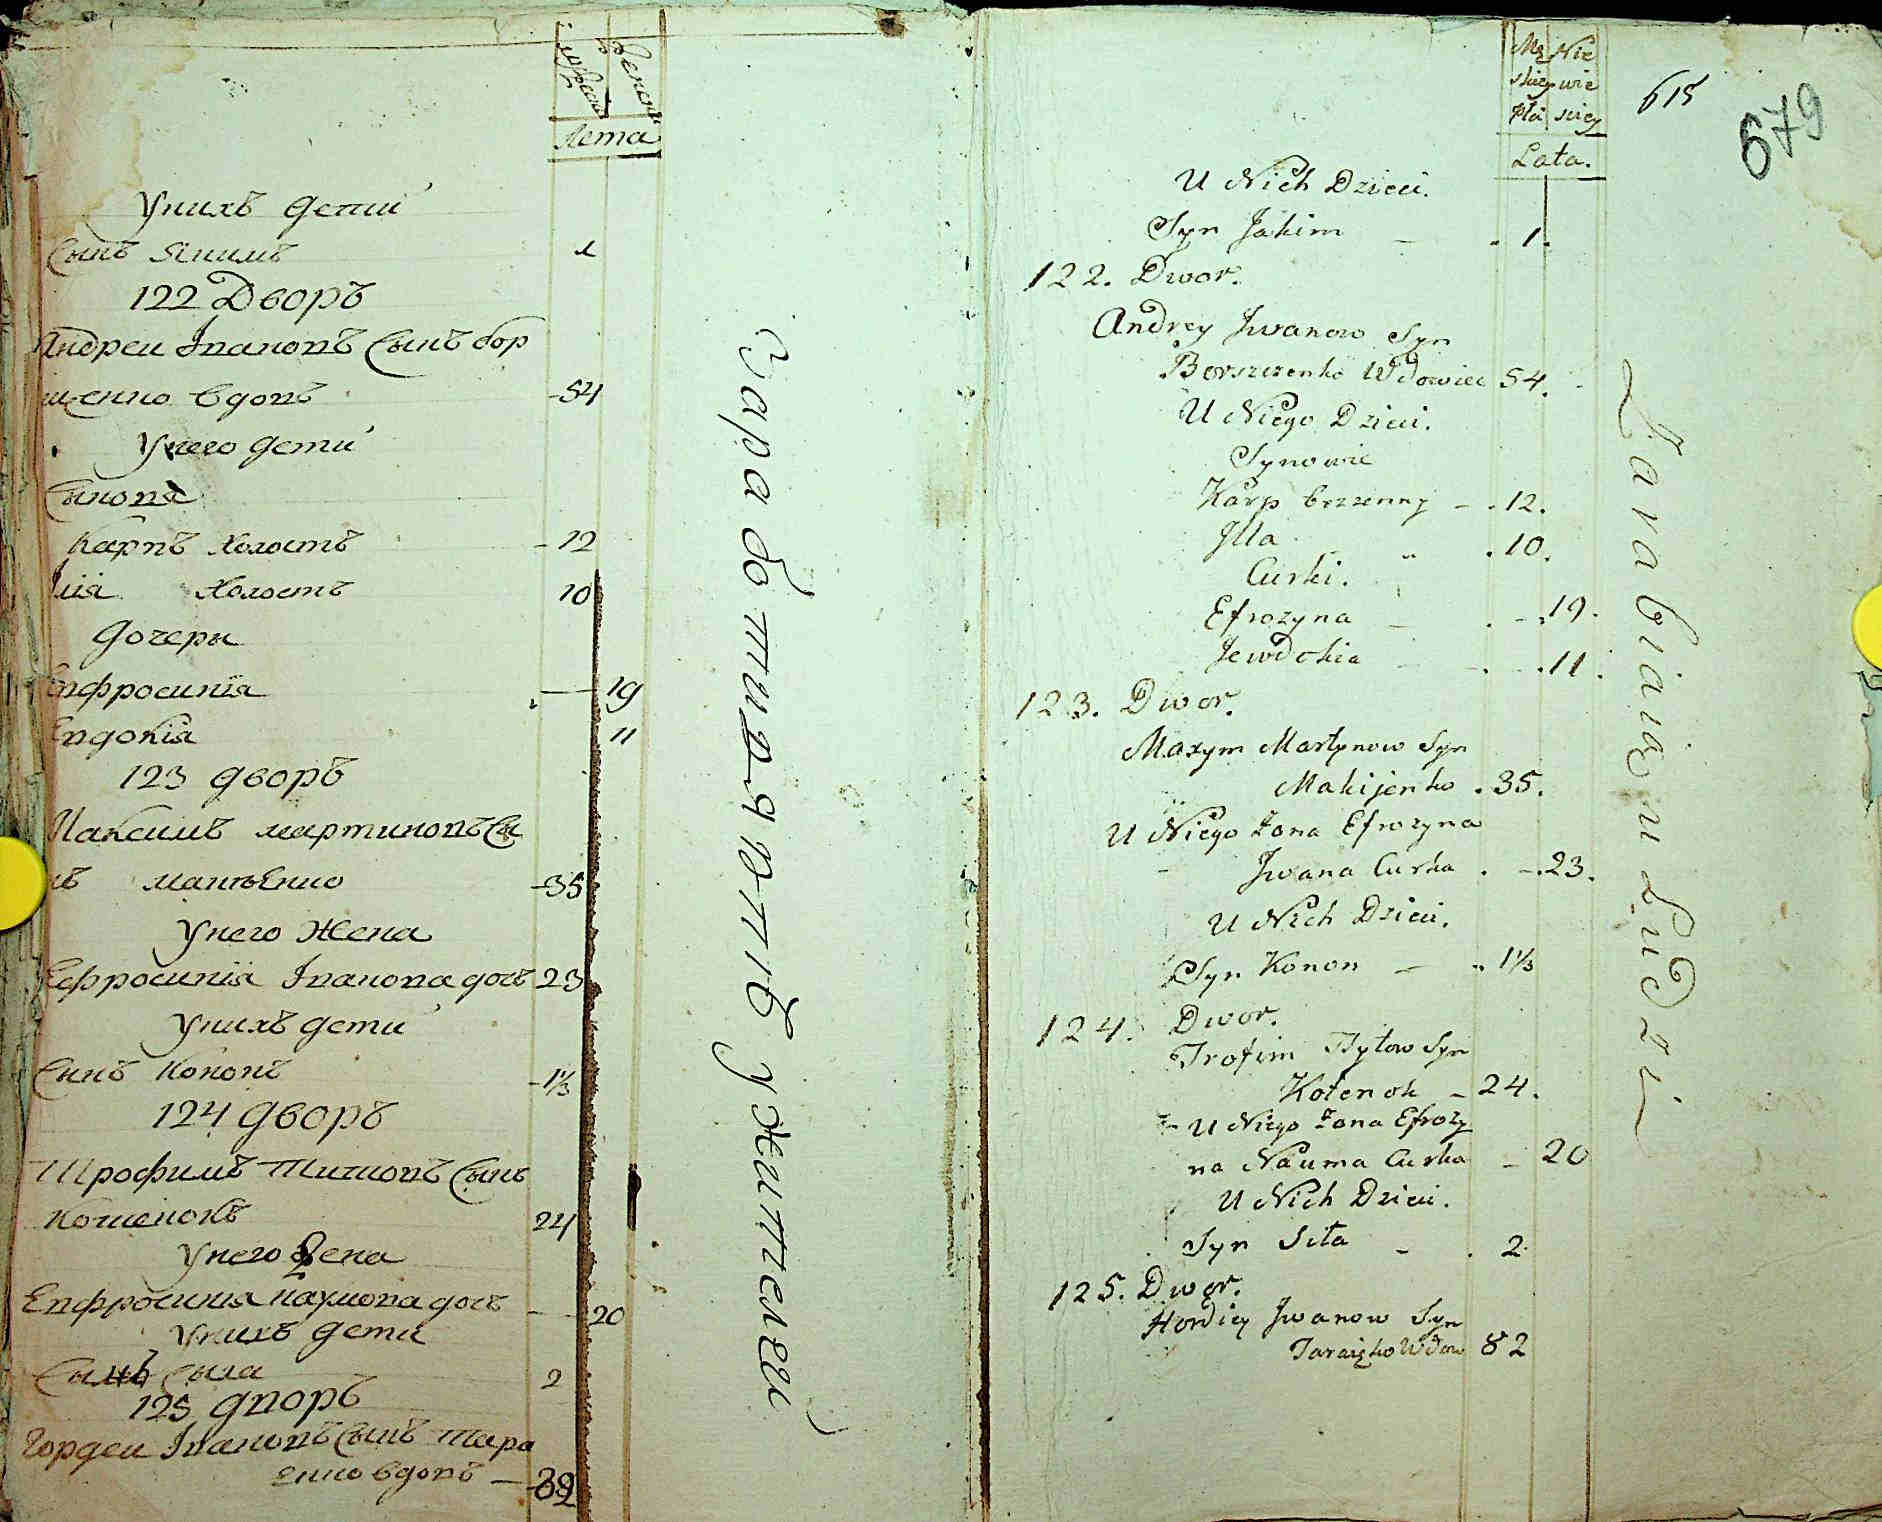 мужеска
женска
Лета
У нихъ дети
Сынъ Якимъ 1
122 Дворъ
Андреи Iвановъ Сынъ бор
щенко вдовъ 54
У него дети
Сынова
Карпъ Холостъ 12
Iлiя Холостъ 10
Дочеры
Евфросинiя 19
Евдокiя 11
123 дворъ
Максимъ мартиновъ Сы
нъ макъенко 35
У него Жена
Ефросинiя Iванова дочъ 23
У нихъ дети
Сынъ Кононъ 1⅓
124 дворъ
Трофимъ Титовъ Сынъ
Котенокъ 24
У него Жена
Евфросиния наумова дочъ 20
У нихъ дети
Сынъ Сыла 2
125 дворъ
Гордеи Iвановъ Сынъ тара
енко вдовъ 82
Заработываютъ у жителей
615
679
Mę Nie
skiey wie
płci sciey
Lata.
U Nich Dzieci.
Syn Jakim 1.
122. Dwor.
Andrey Jwanow Syn
Borszczenko Wdowiec 54.
U Niego Dzieci.
Synowie
Karp bezzenny 12.
Jlla 10.
Curki.
Efrozyna 19.
Jewdokia 11.
123. Dwor.
Maxym Martynow Syn
Makijenko 35.
U Niego Zona Efrozyna
Jwana Curka 23.
U Nich Dzieci.
Syn Konon 1⅓
124. Dwor.
Trofim Tytow Syn
Kotenok 24.
U Niego Zona Efrozy
na Nauma Curka 20
U Nich Dzieci.
Syn Siła 2
125. Dwor.
Hordiey Jwanow Syn
Taraięko Wdow 82
Zarabiaią u Ludzi